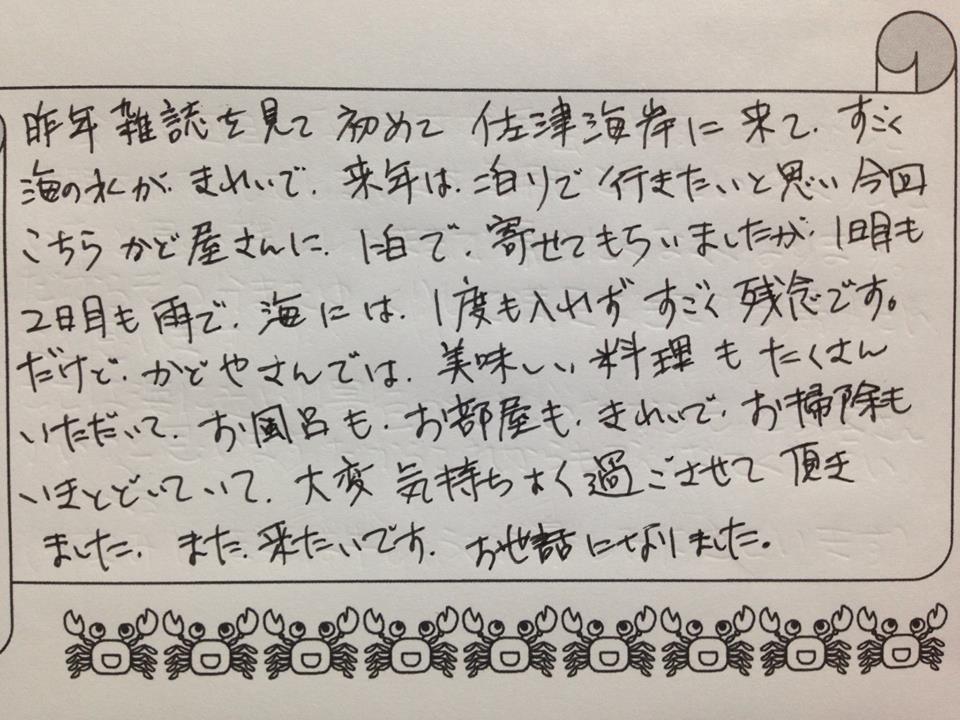 昨年雑誌を見て 初めて 佐津海岸に 来て、すごく
海の水が、きれいで、来年は、泊りで行きたいと思い今回
こちらかど屋さんに、1泊で、寄せてもらいましたが、1日目も
2日目も雨で、海には、1度も入れず すごく残念です。
だけど、かどやさんでは、美味しい料理もたくさん
いただいて、お風呂も、お部屋も、きれいで、お掃除も
いきとどいていて、大変気持ちよく過ごさせて頂き
ました、また、来たいです、お世話になりました。